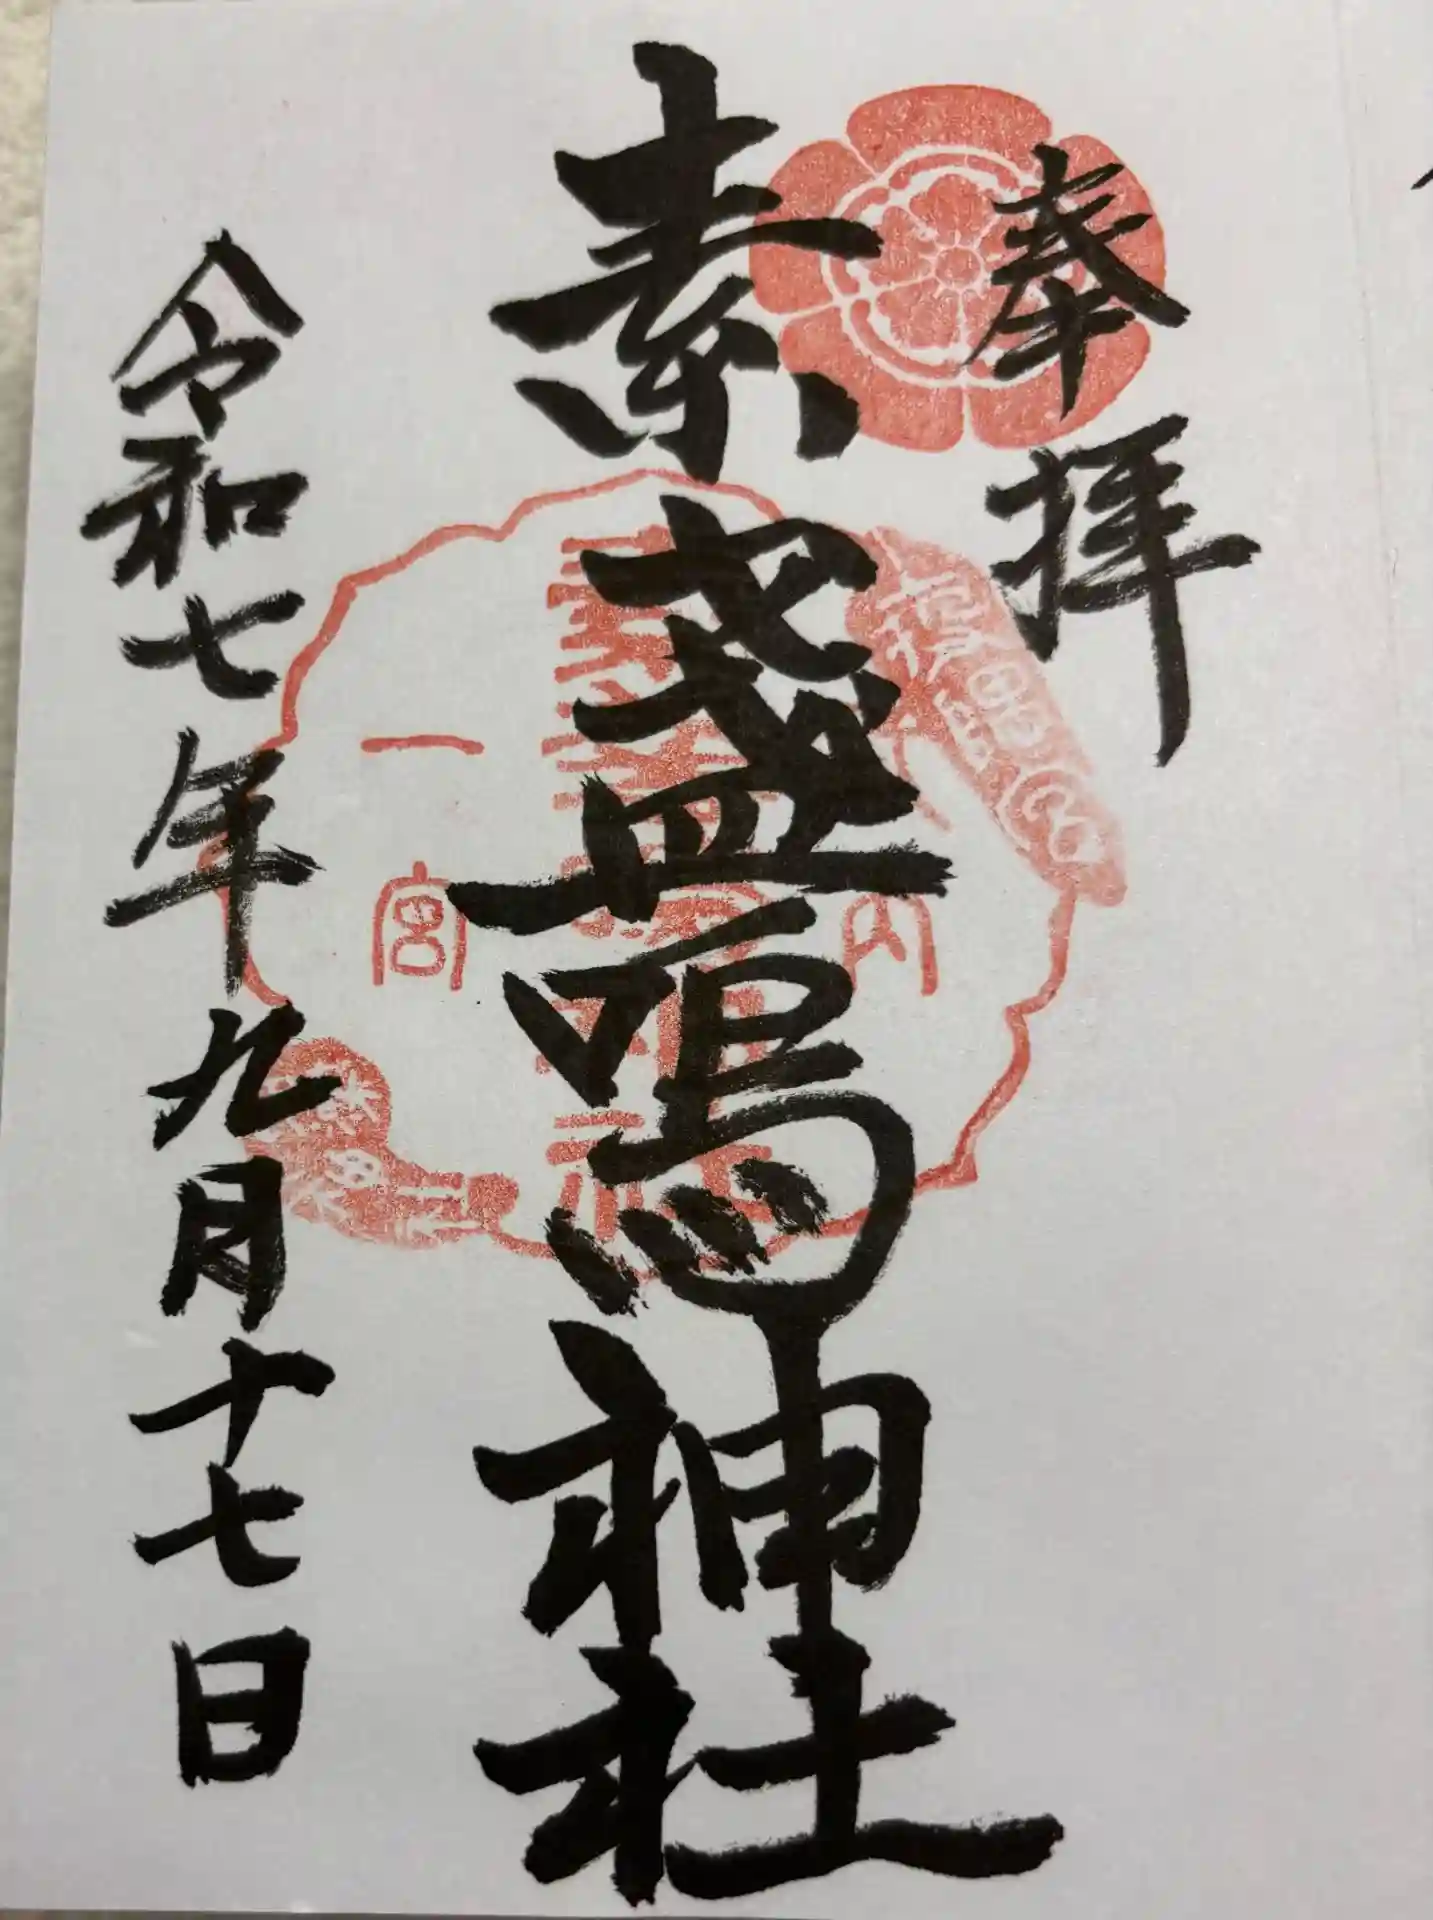 奉拝
素盞嗚神社
一宮
内
令和七年九月十七日